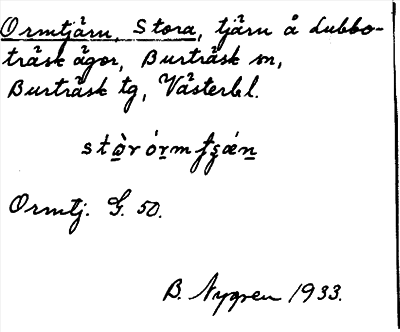 Ormtjärn, Stora, tjärn å Lubbo-
träsk ägor, Burträsk sn,
Burträsk tg, Västerbl.
Ormtj. G. 50.
B. Nygren 1933.